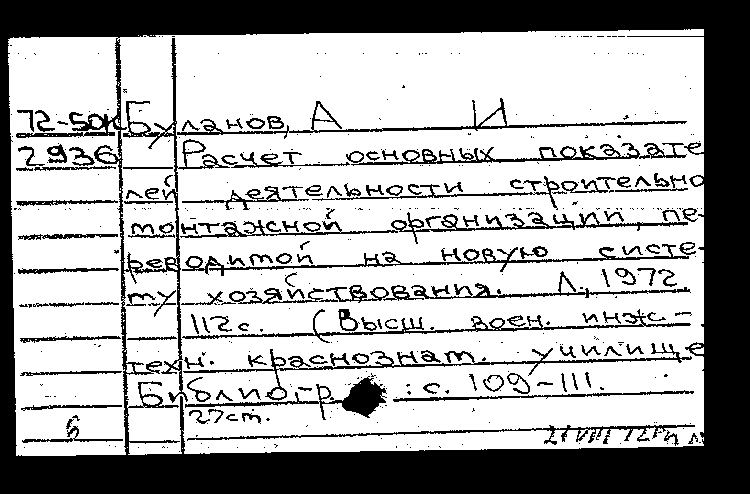 72-50к Буланов, А И
2936 Расчет основных показате
лей деятельности строительно
монтажной организации, пе-
реводимой на новую систе-
му хозяйствования. Л., 1972
112с. (Высш. воен. инж.-
техн. краснознам. училище
Библиогр : с. 109-111.
27см.